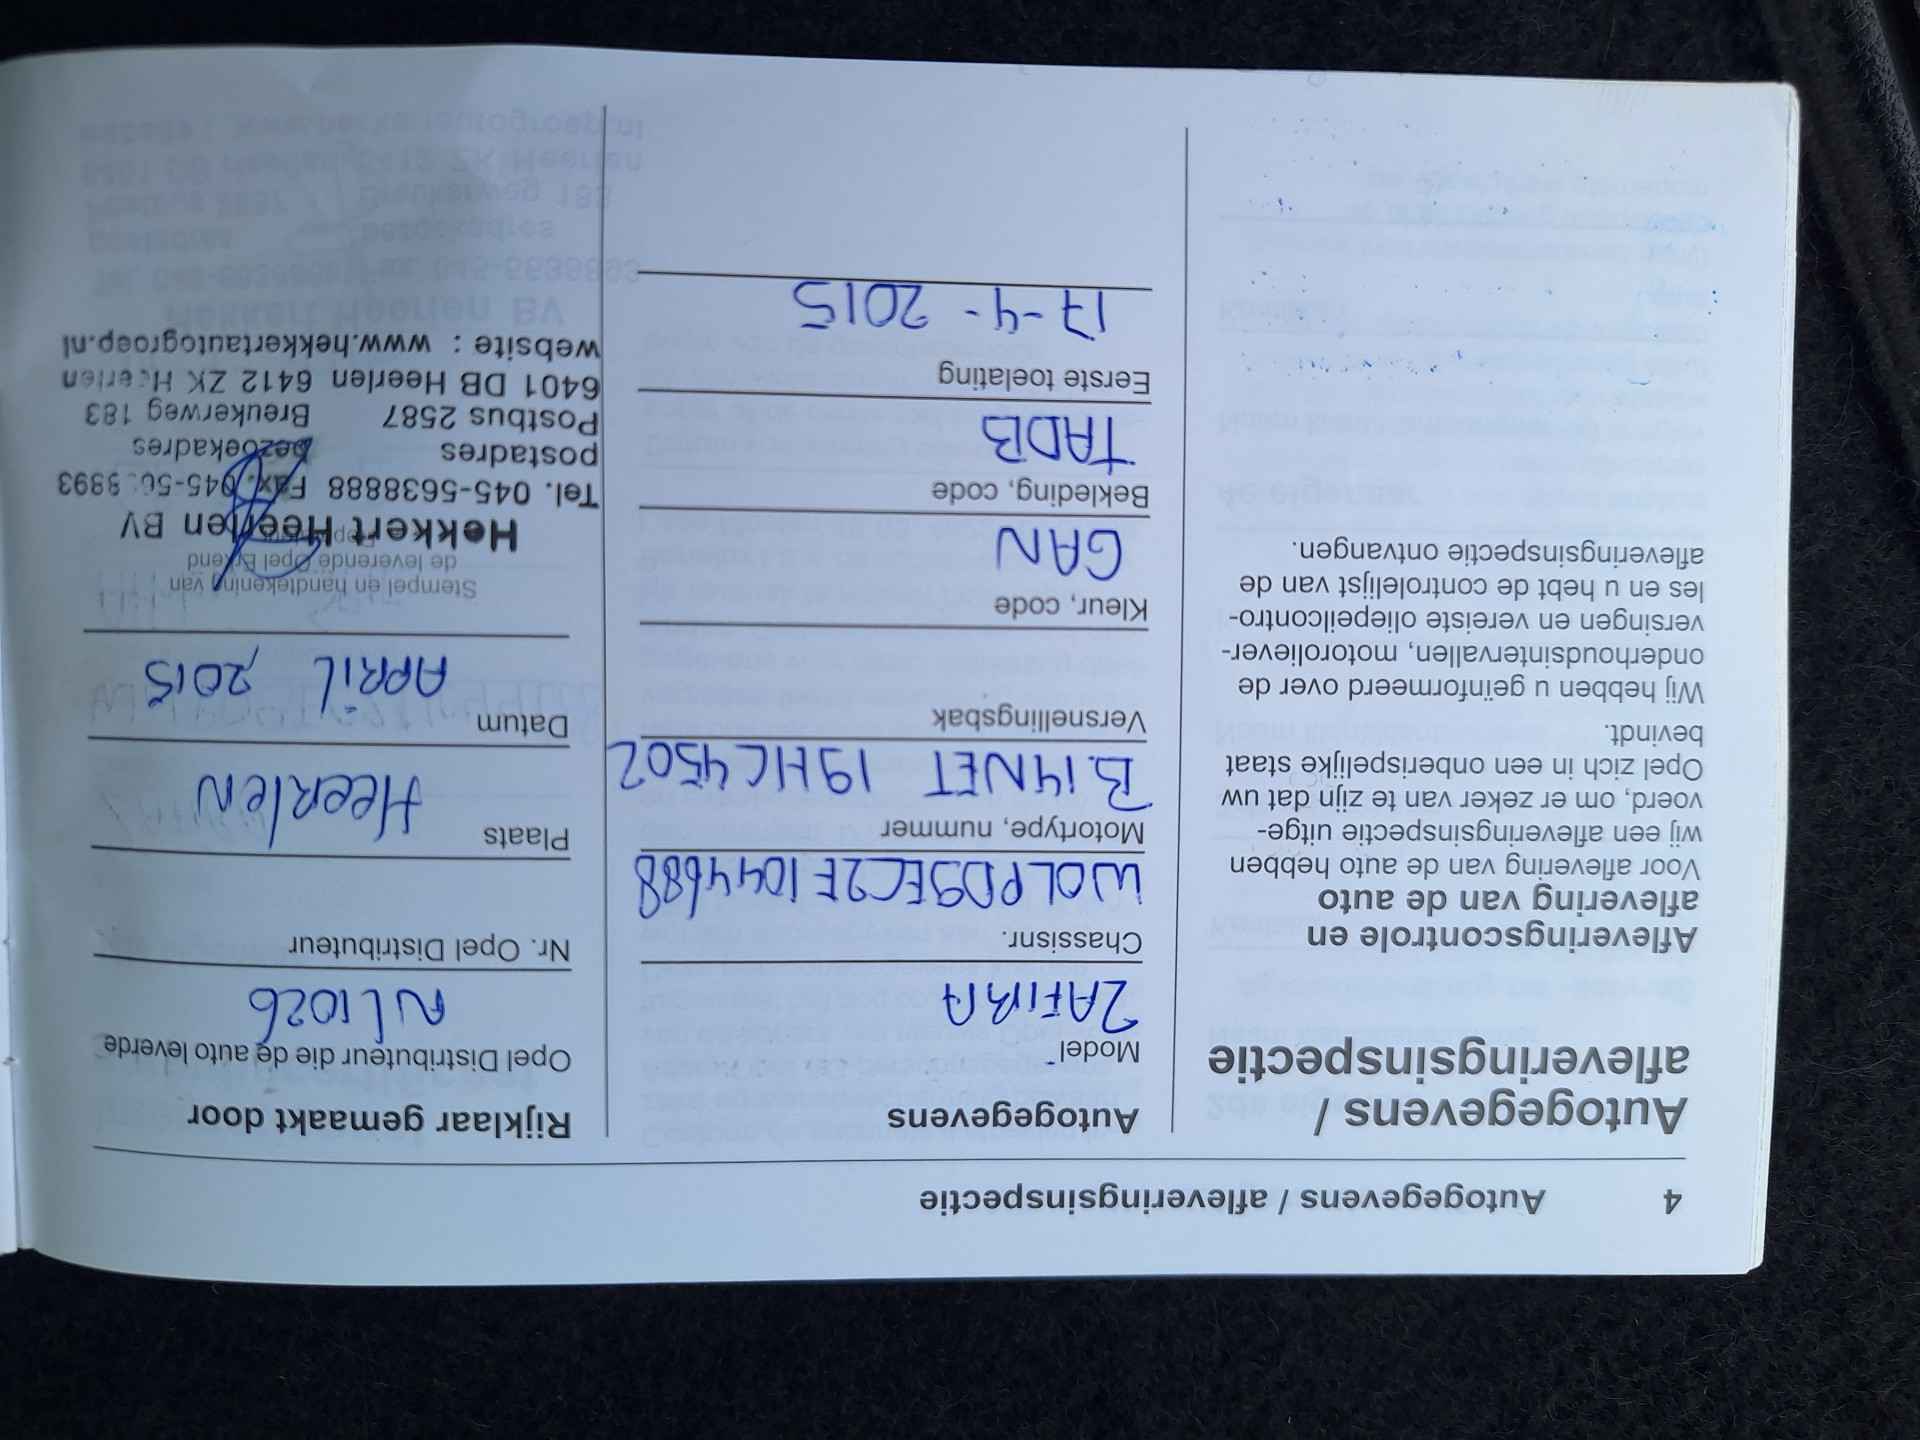 4 Autogegevens / afleveringsinspectie
Autogegevens /
afleveringsinspectie
Afleveringscontrole en
aflevering van de auto
Voor aflevering van de auto hebben
wij een afleveringsinspectie uitge-
voerd, om er zeker van te zijn dat uw
Opel zich in een onberispelijke staat
bevindt.
Wij hebben u geïnformeerd over de
onderhoudsintervallen, motoroliever-
versingen en vereiste oliepeilcontro-
les en u hebt de controlelijst van de
afleveringsinspectie ontvangen.
Autogegevens
Model
ZAFIRA
Chassisnr.
W0LPD9EC2F1044688
Motortype, nummer
B.14NET 19HC4502
Versnellingsbak
Kleur, code
GAN
Bekleding, code
TADB
Eerste toelating
17-4-2015
Rijklaar gemaakt door
Opel Distributeur die de auto leverde
NL1026
Nr. Opel Distributeur
Plaats
HEERLEN
Datum
APRIL 2015
Stempel en handtekening van
de leverende Opel Erkend
Hekkert Heerlen BV
Tel. 045-5638888 Fax. 045-
postadres bezoekadres
Postbus 2587 Breukerweg 183
6401 DB Heerlen 6412 ZK Heerlen
website : www.hekkertautogroep.nl